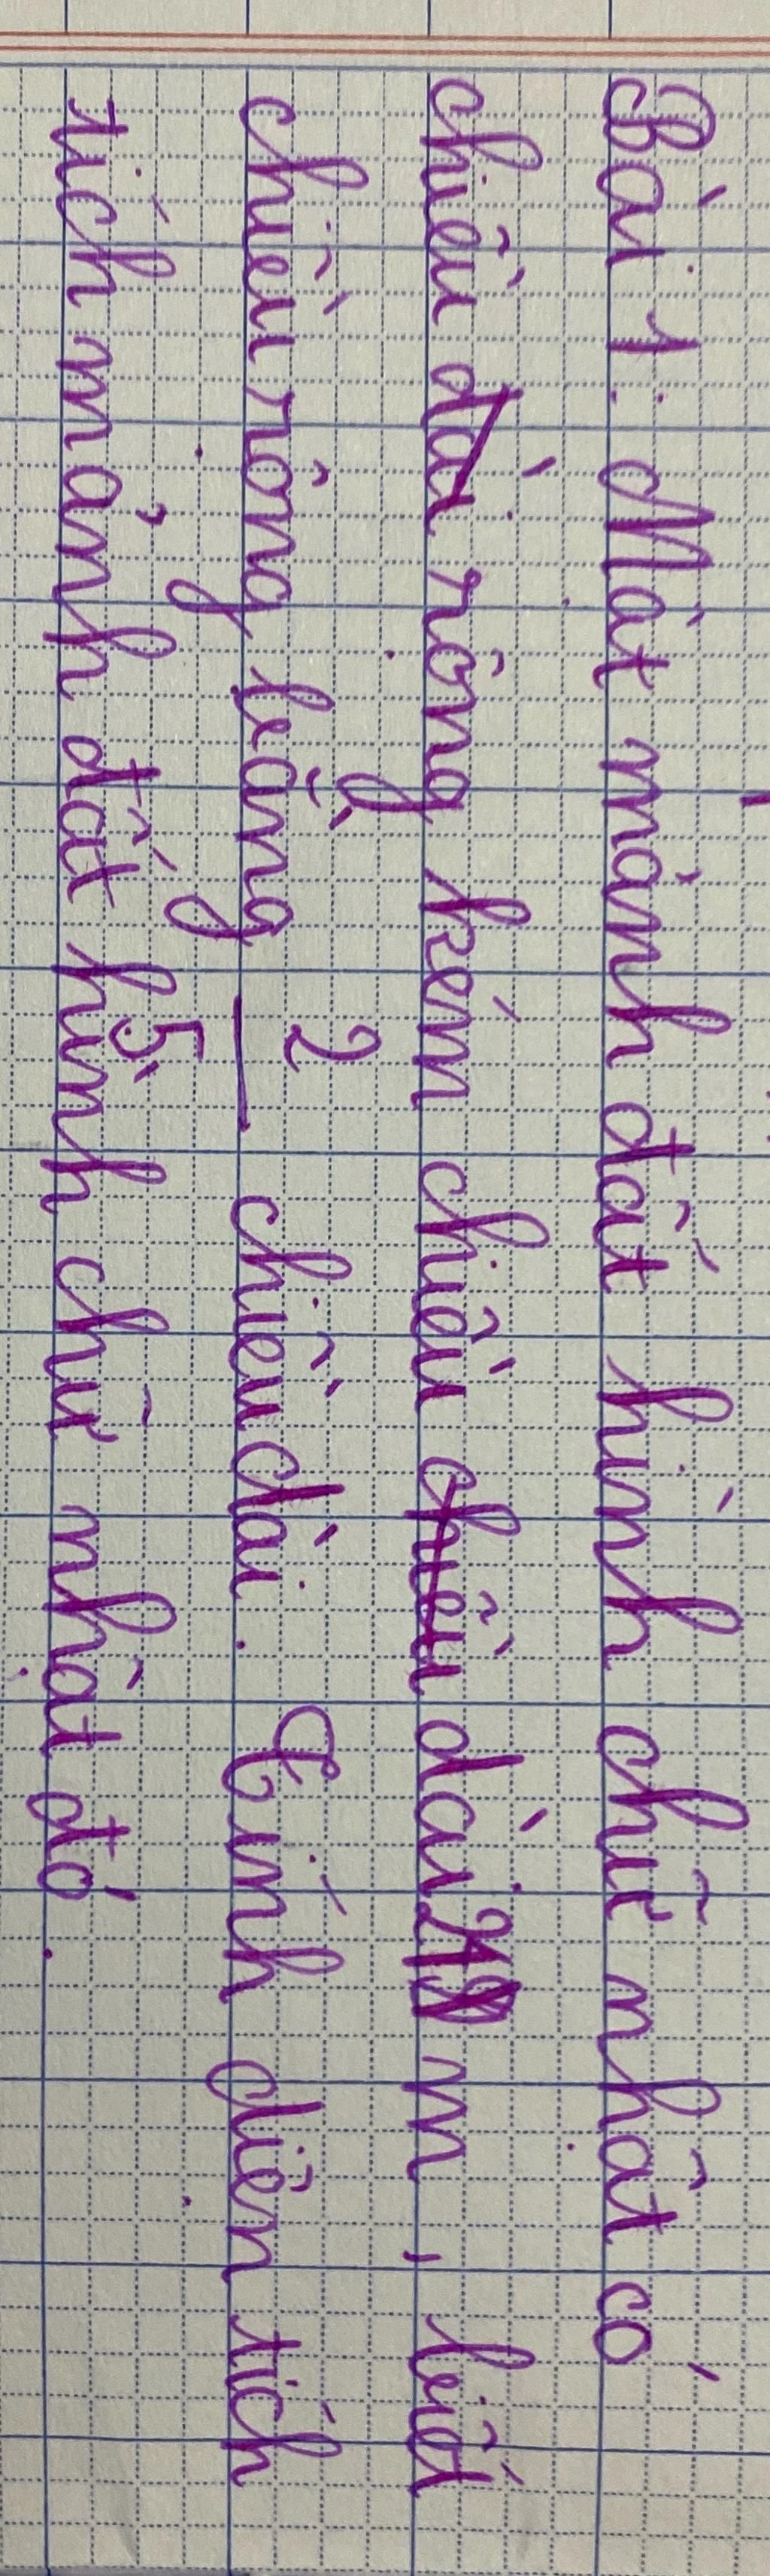 Bài 1: Một mảnh đất hình chữ nhật có
chiều dài rộng kém chiều chiều dài 21 m, biết
chiều rộng bằng 2/5 chiều dài. Tính diện tích
tích mảnh đất hình chữ nhật đó.